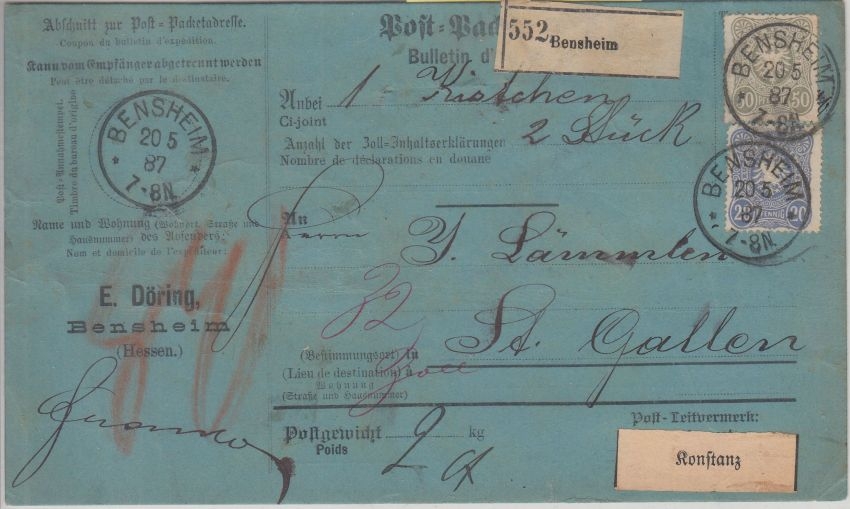 Abschnitt zur Post-Packetadresse.
Coupon du bulletin d'expédition.
Kann vom Empfänger abgetrennt werden
Peut être détaché par le destinataire.
Post-Annahmestempel.
Timbre du bureau d'origine
BENSHEIM
20 5
87
7-8N.
Name und Wohnung (Wohnort, Straße und
Hausnummer) des Absenders:
Nom et domicile de l'expéditeur:
E. Döring,
Bensheim
(Hessen.)
franko
Post-Pack
Bulletin d'
552
Bensheim
Anbei 1 Kistchen
Ci-joint
Anzahl der Zoll-Inhaltserklärungen 2 Stück
Nombre de déclarations en douane
An
Herrn
Lämmlen
32
Zoll
(Bestimmungsort) in St. Gallen
(Lieu de destination) à
Wohnung
(Straße und Hausnummer)
Postgewicht 2 kg
Poids
Post-Leitvermerk:
Konstanz
50 50
BENSHEIM
20 5
87
7-8N.
20 PFENNIG 20
BENSHEIM
20 5
87
7-8N.